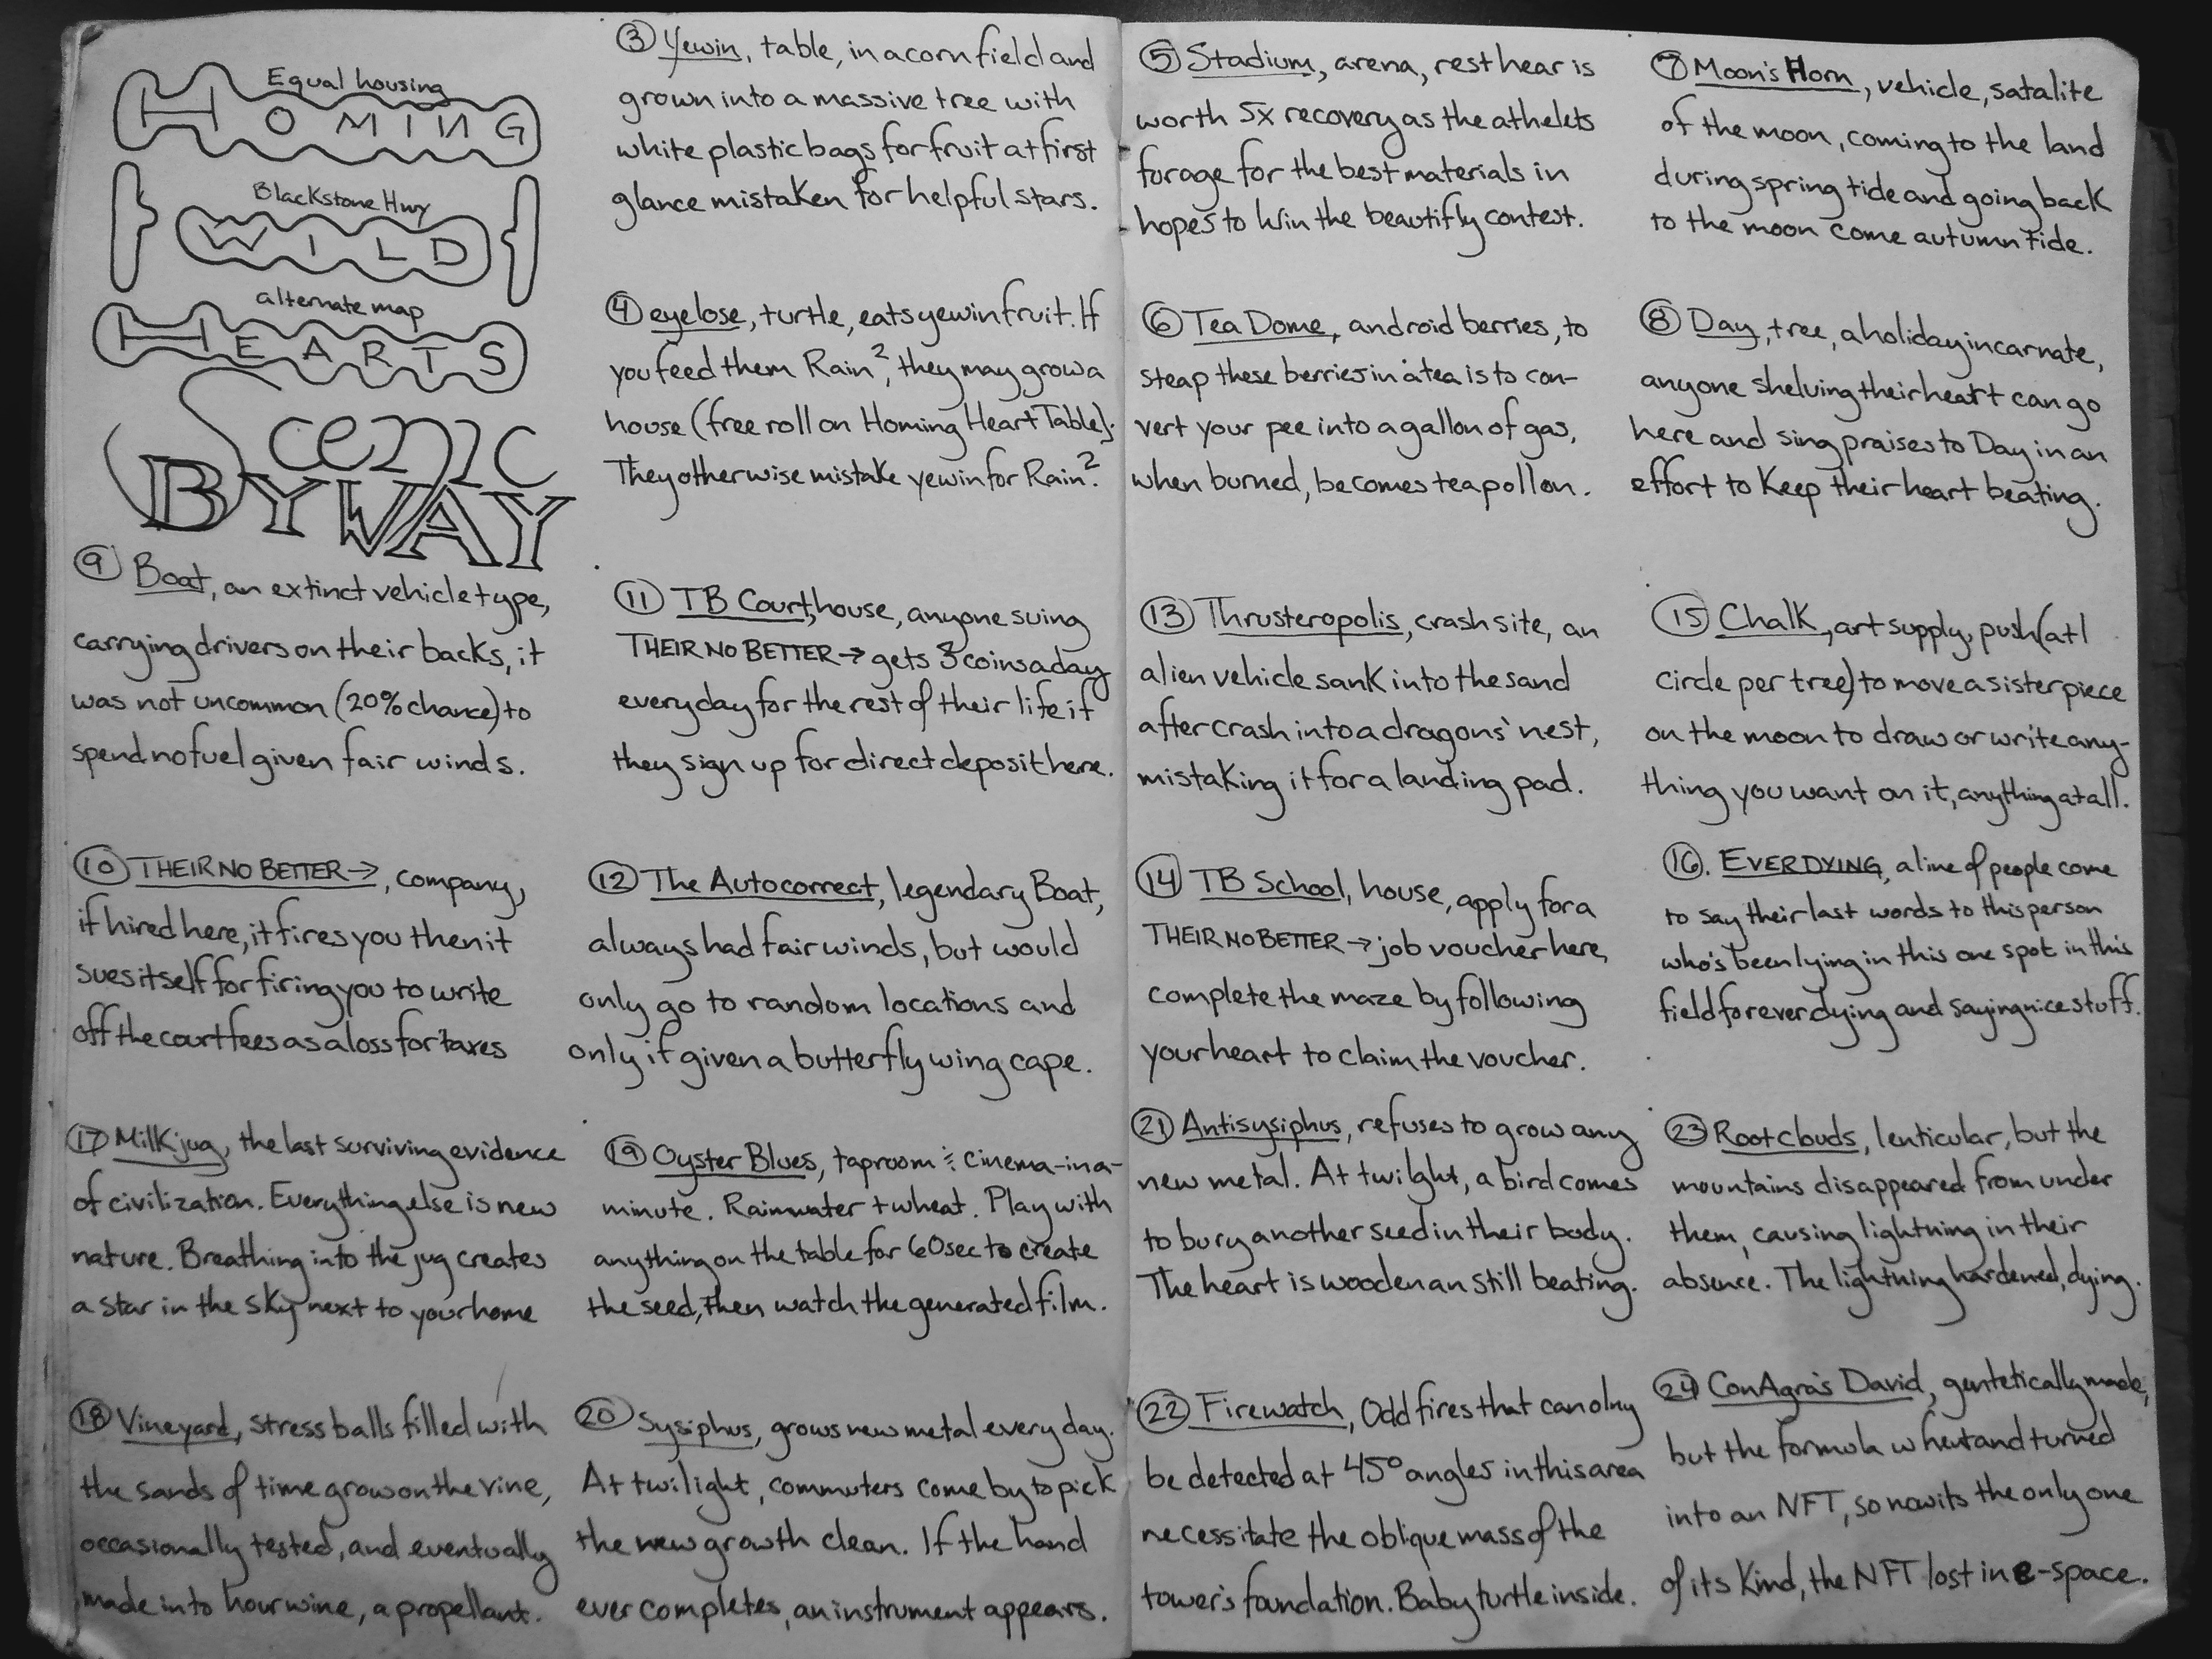 Equal housing
HOMING
Blackstone Hwy
WILD
alternate map
HEARTS
Scenic
BYWAY
③ Yewin, table, in a corn field and
grown into a massive tree with
white plastic bags for fruit at first
glance mistaken for helpful stars.
④ eyelose, turtle, eats yewin fruit. If
you feed them Rain², they may grow a
house (free roll on Homing Heart Table).
They otherwise mistake yewin for Rain².
⑤ Stadium, arena, rest hear is
worth 5x recovery as the athelets
forage for the best materials in
hopes to win the beautifly contest.
⑥ Tea Dome, android berries, to
steap these berries in a tea is to con-
vert your pee into a gallon of gas,
when burned, becomes tea pollon.
⑦ Moon's Horn, vehicle, satalite
of the moon, coming to the land
during spring tide and going back
to the moon come autumn tide.
⑧ Day, tree, a holiday incarnate,
anyone shelving their heart can go
here and sing praises to Day in an
effort to keep their heart beating.
⑨ Boat, an extinct vehicle type,
carrying drivers on their backs, it
was not uncommon (20% chance) to
spend no fuel given fair winds.
⑩ THEIR NO BETTER →, company,
if hired here, it fires you then it
sues itself for firing you to write
off the court fees as a loss for taxes
⑪ TB Court, house, anyone suing
THEIR NO BETTER → gets 3 coins a day
everyday for the rest of their life if
they sign up for direct deposit here.
⑫ The Autocorrect, legendary Boat,
always had fair winds, but would
only go to random locations and
only if given a butterfly wing cape.
⑬ Thrusteropolis, crash site, an
alien vehicle sank into the sand
after crash into a dragons' nest,
mistaking it for a landing pad.
⑭ TB School, house, apply for a
THEIR NO BETTER → job voucher here,
complete the maze by following
your heart to claim the voucher.
⑮ Chalk, art supply, push (at 1
circle per tree) to move a sister piece
on the moon to draw or write any-
thing you want on it, anything at all.
⑯. EVERDYING, a line of people come
to say their last words to this person
who's been lying in this one spot in this
field forever dying and saying nice stuff.
⑰ Milk jug, the last surviving evidence
of civilization. Everything else is new
nature. Breathing into the jug creates
a star in the sky next to your home
⑱ Vineyard, stress balls filled with
the sands of time grow on the vine,
occasionally tested, and eventually
made into hour wine, a propellant.
⑲ Oyster Blues, taproom & cinema-in-a-
minute. Rainwater + wheat. Play with
anything on the table for 60sec to create
the seed, then watch the generated film.
⑳ Sysiphus, grows new metal every day.
At twilight, commuters come by to pick
the new growth clean. If the hand
ever completes, an instrument appears.
㉑ Antisysiphus, refuses to grow any
new metal. At twilght, a bird comes
to bury another seed in their body.
The heart is wooden an still beating.
㉒ Firewatch, Odd fires that can olny
be detected at 45° angles in this area
necessitate the oblique mass of the
tower's foundation. Baby turtle inside.
㉓ Rootclouds, lenticular, but the
mountains disappeared from under
them, causing lightning in their
absence. The lightning hardened, dying.
㉔ ConAgra's David, gentetically made,
but the formula whent and turned
into an NFT, so now its the only one
of its kind, the NFT lost in e-space.